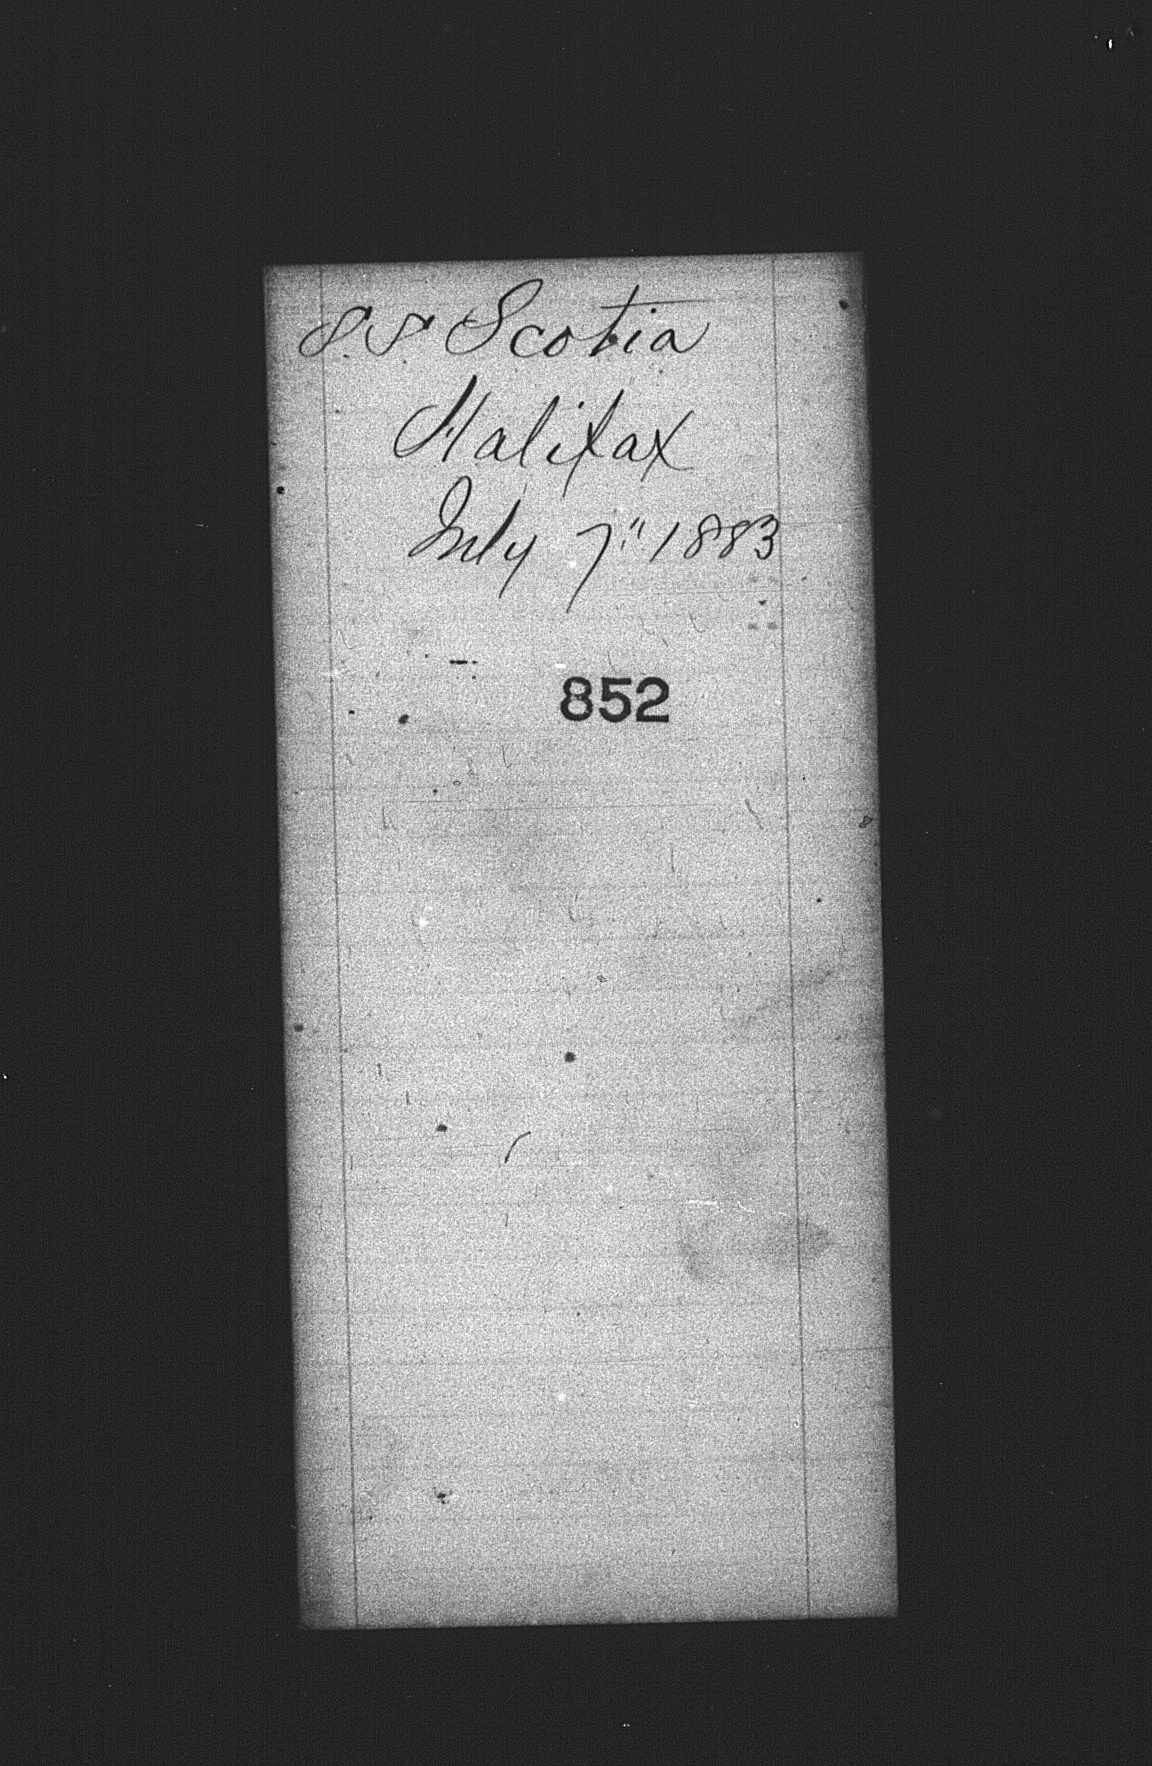 SS Scotia
Halifax
July 7" 1883
852